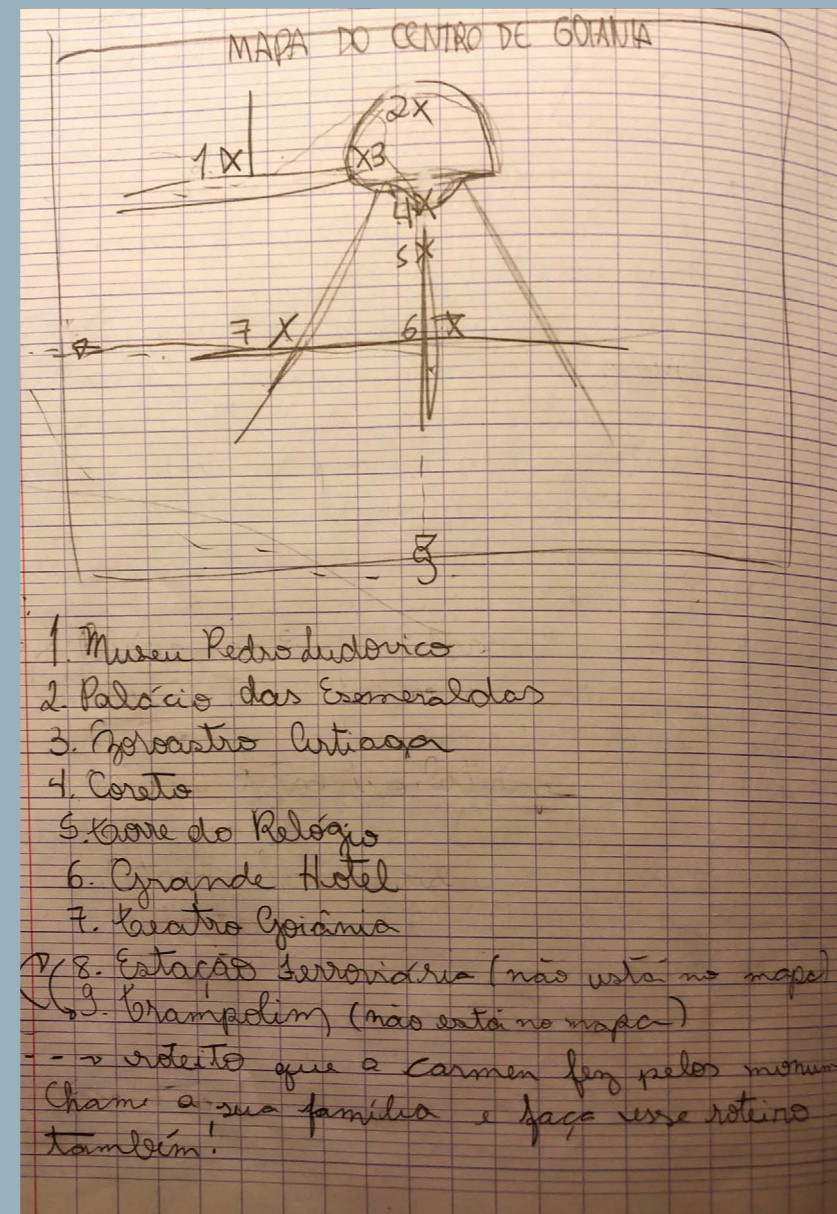 MAPA DO CENTRO DE GOIANIA
2X
1. X
X3
4X
5X
7 X
6 X
8
1. Museu Pedro Ludovico
2. Palácio das Esmeraldas
3. Zoroastro Artiaga
4. Coreto
5. torre do Relógio
6. Grande Hotel
7. teatro Goiânia
8. Estação Ferroviária (não está no mapa)
9. trampolim (não está no mapa)
roteito que a Carmen fez pelos monum
Chame a sua família e faça esse roteiro
também!